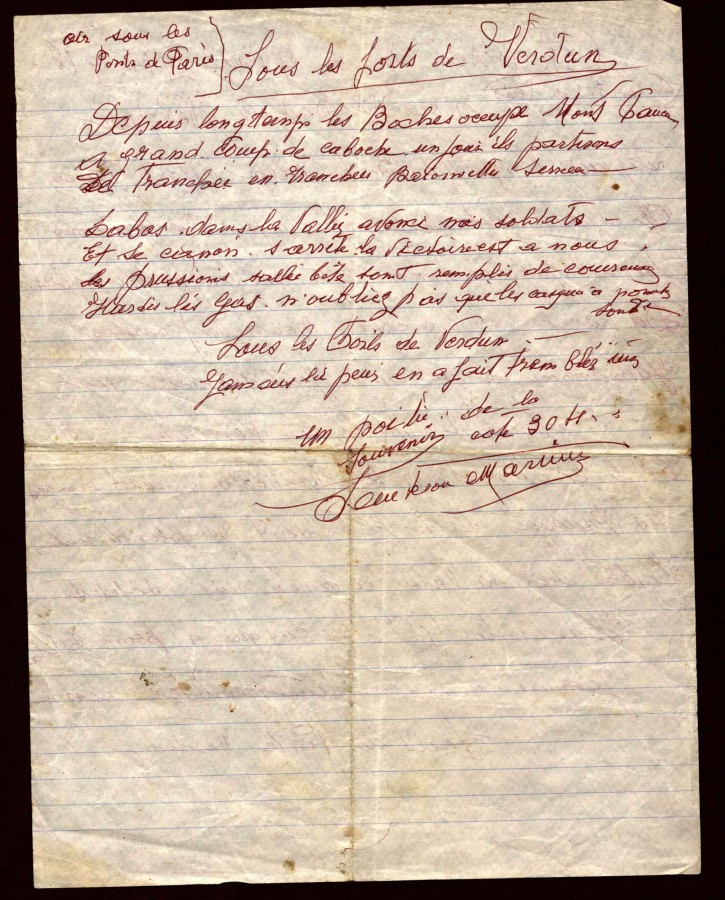 air sous les
Ponts de Paris
Sous les forts de Verdun
Depuis longtemps les Boches occupe Mont
a grand coup de caboche un jour ils partirons
De Tranchée en trancheés
Labas dans la Vallée avance nos soldats
Et le canon s'arrête la Victoire est a nous
les prussions salle bête sont remplis de
Hardis lés gas n'oubliez pas que les casque a pointe
sont
Sous les Forts de Verdun
Jamais la peur en a fait trembler
un poilu de la
Souvenir cote 304
Marius